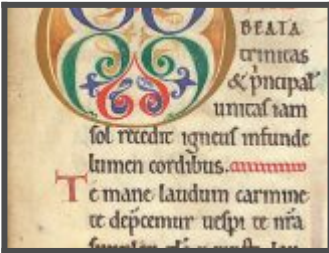 BEATA
trinitas
& p̄ncipal᷒
unitaſ iam
ſol recedit igneuſ infunde
lumen cordibus.
Te mane laudum carmine
te dep̄cemur ueſpi te nr̄a